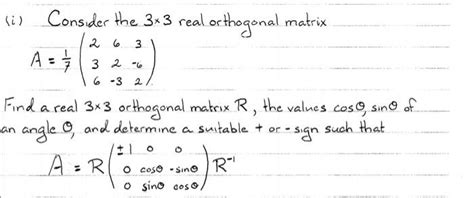 (i) Consider the 3×3 real orthogonal matrix
A = 1/7 ( 2 6 3
3 2 -6
6 -3 2 )
Find a real 3×3 orthogonal matrix R, the values cosθ, sinθ of
an angle θ, and determine a suitable + or - sign such that
A = R ( ±1 0 0
0 cosθ -sinθ
0 sinθ cosθ ) R⁻¹